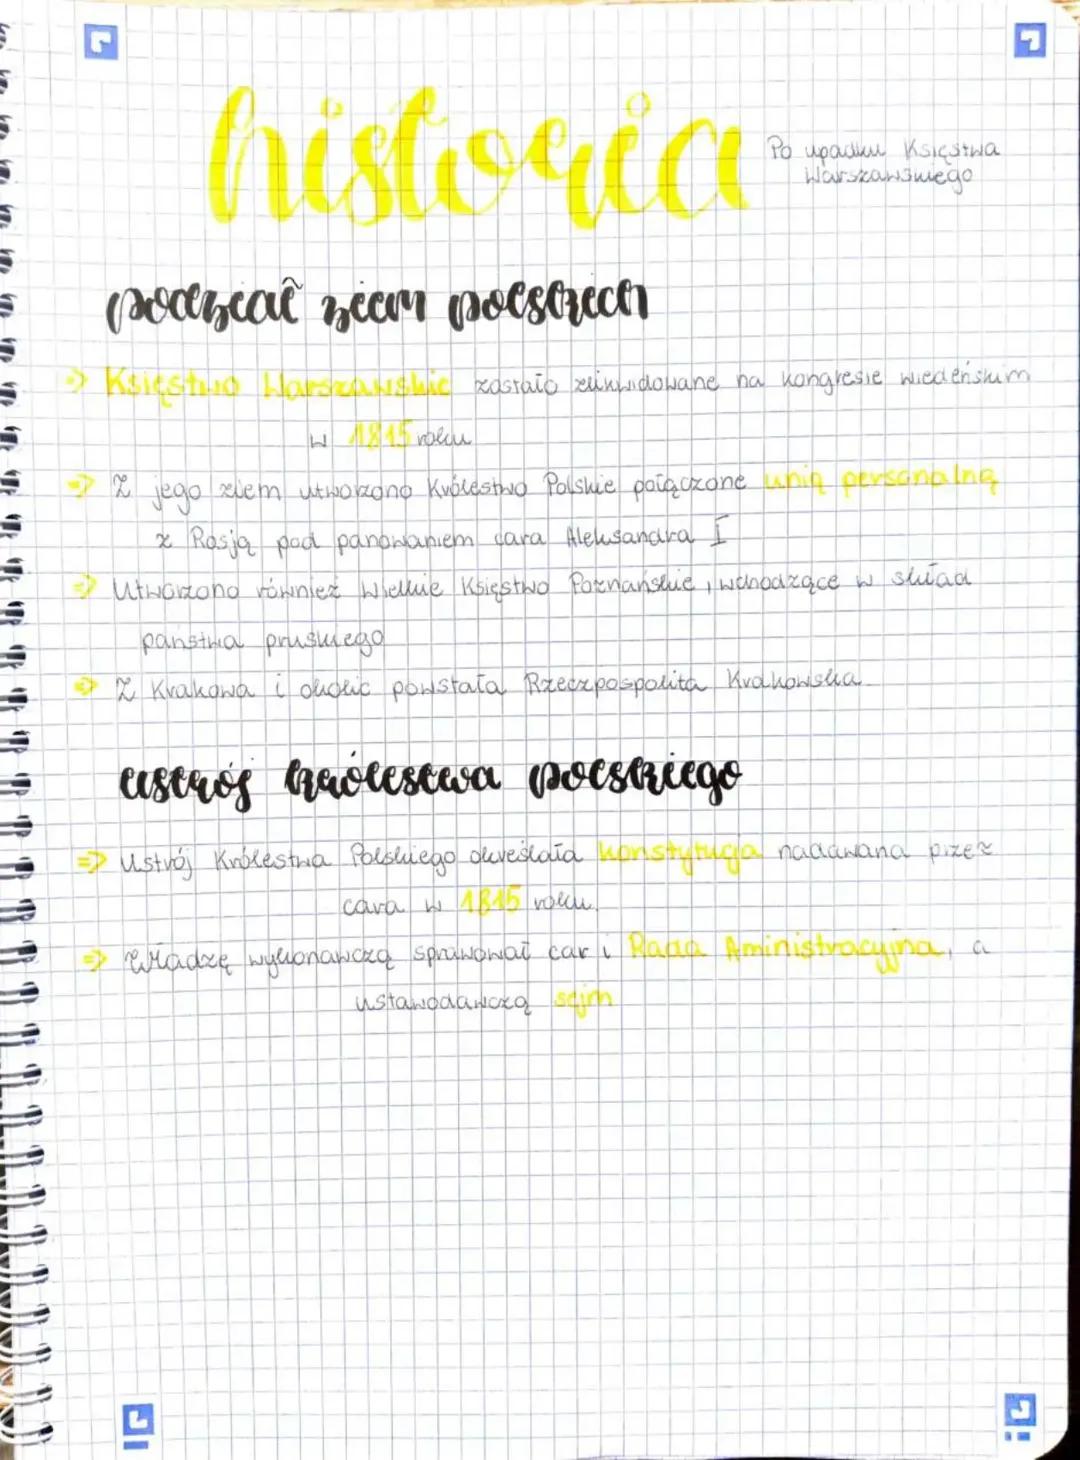 historia
Po upadku Księstwa
Warszawskiego
podział ziem polskich
=> Księstwo Warszawskie zostało zlikwidowane na kongresie wiedeńskim
w 1815 roku
=> Z jego ziem utworzono Królestwo Polskie połączone unią personalną
z Rosją pod panowaniem cara Aleksandra I
=> Utworzono również Wielkie Księstwo Poznańskie, wchodzące w skład
państwa pruskiego
=> Z Krakowa i okolic powstała Rzeczpospolita Krakowska
ustrój królestwa polskiego
=> Ustrój Królestwa Polskiego określała konstytucja nadawana przez
cara w 1815 roku.
=> Władzę wykonawczą sprawował car i Rada Aministracyjna, a
ustawodawczą sejm